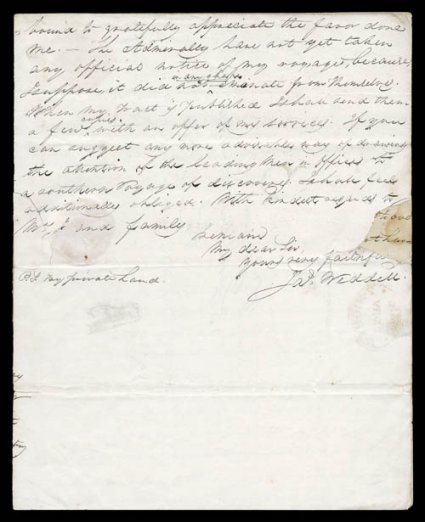 bound to gratefully appreciate the favor done
me. — The Admiralty have not yet taken
any official notice of my voyage, because,
I suppose, it did not in any shape emanate from themselves.
When my tract is published I shall send them
a few copies with an offer of my services. If you
can suggest any more advisable way of drawing
the attention of the leading Men in office to
a southern voyage of discovery I shall feel
additionally obliged. With kindest regards to
Mrs J and family
I remain
My dear Sir
Yours very faithfully
Jas. Weddell.
P.S. my private hand.